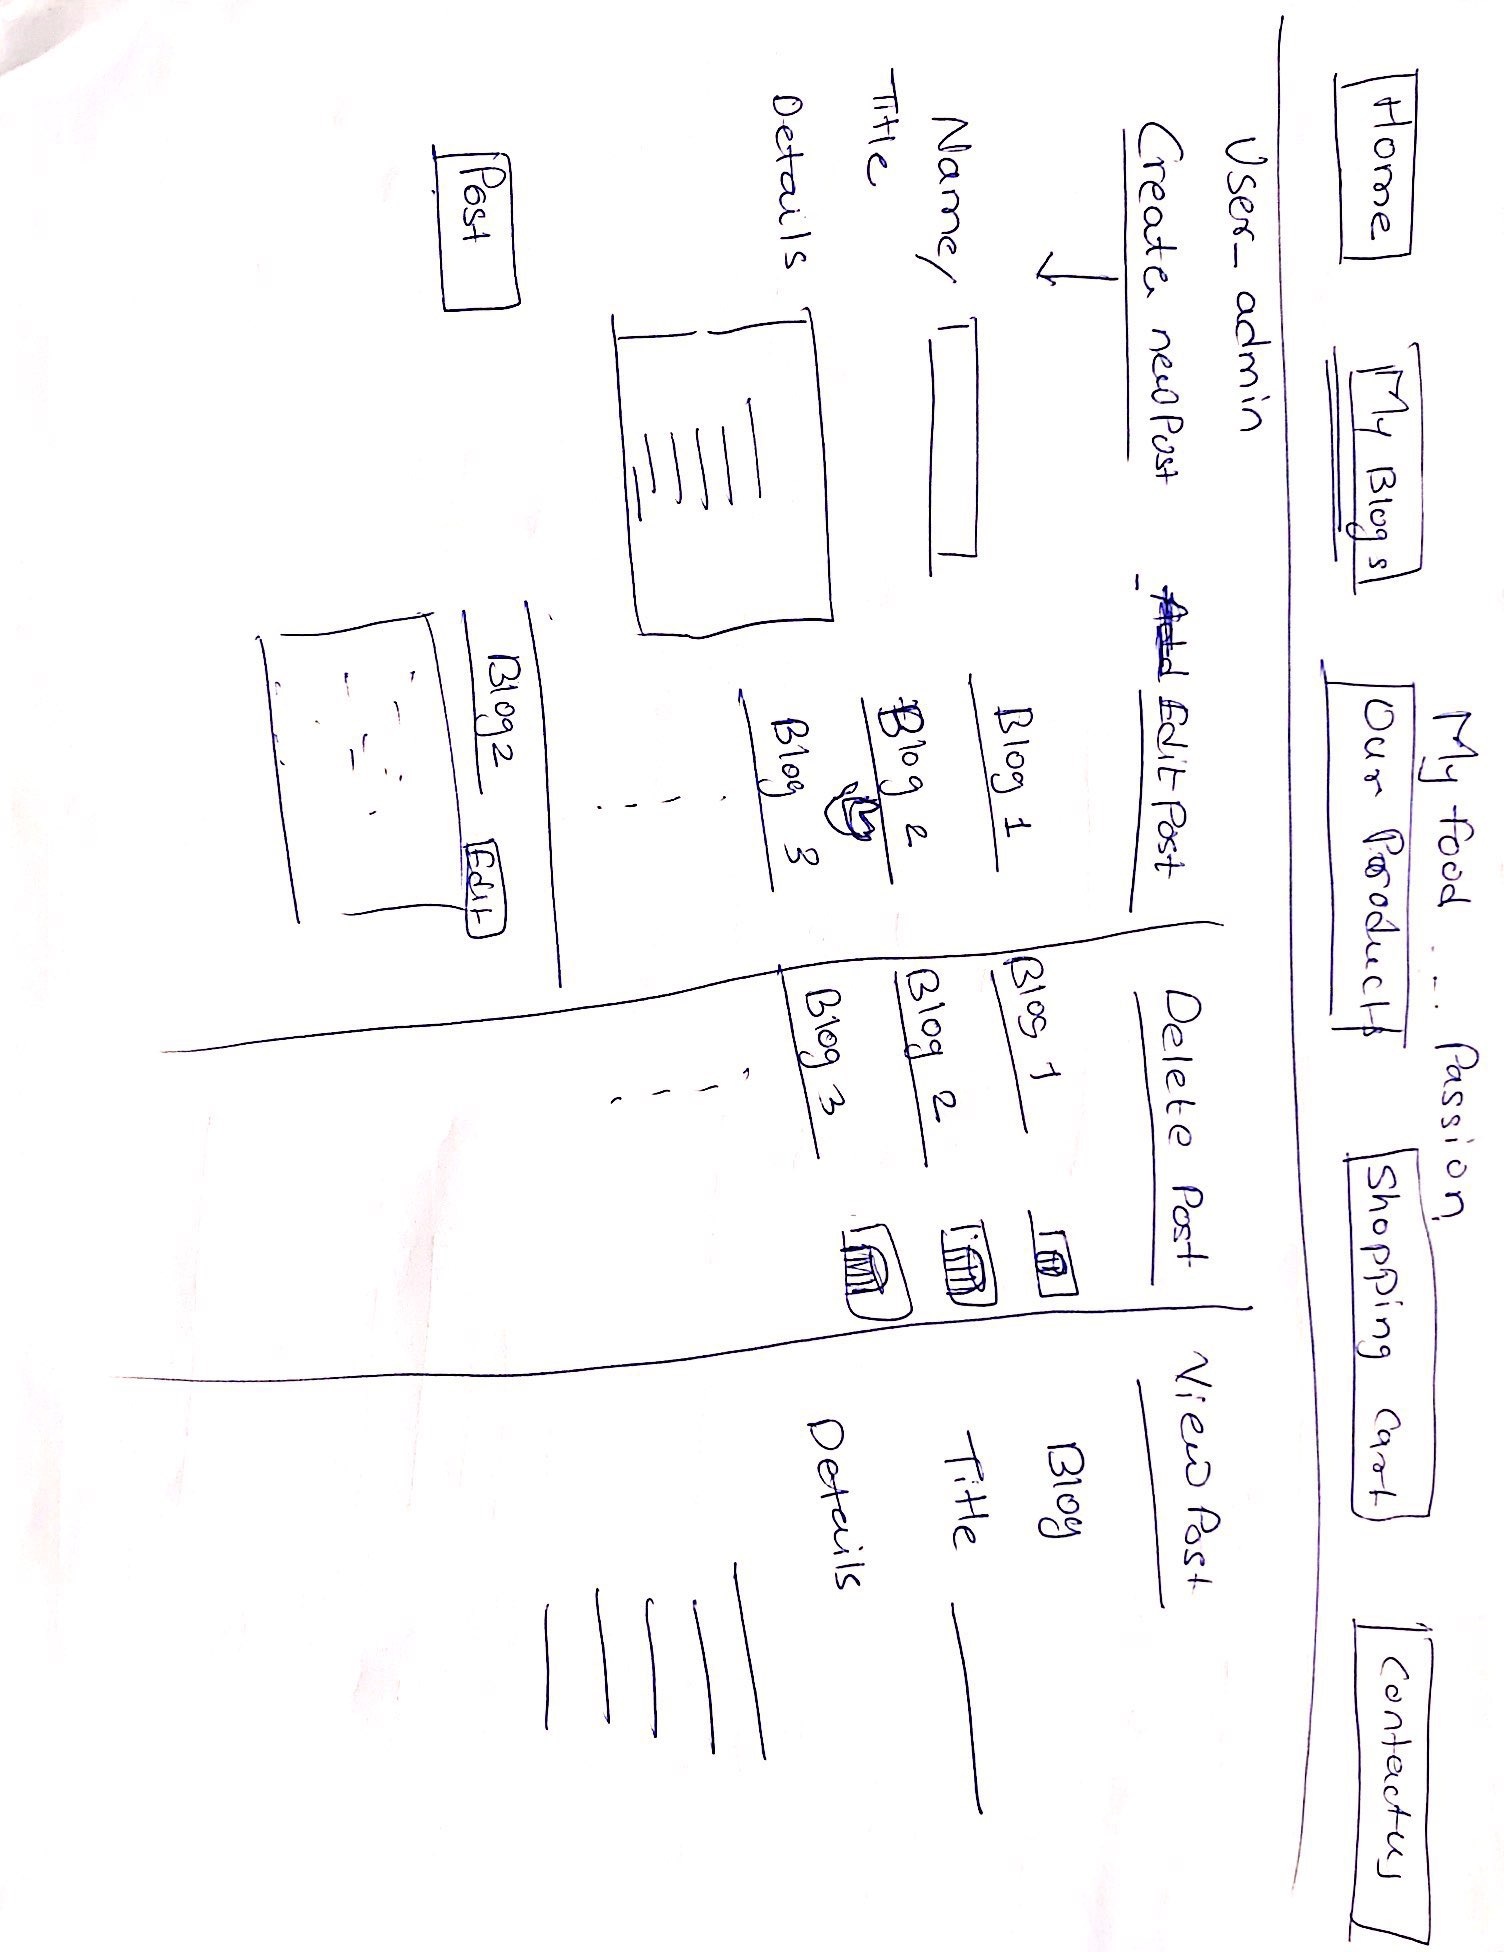 My food ... Passion
Home
My Blogs
Our Products
Shopping Cart
Contactus
User_admin
Create new Post
Name/
Title
Details
Post
Edit Post
Blog 1
Blog 2
Blog 3
Blog 2
Edit
Delete Post
Blog 1
Blog 2
Blog 3
View Post
Blog
Title
Details